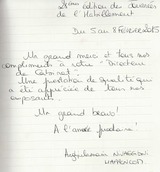 2ème édition des Journées
de l'Habillement
Du 5 au 8 Février 2015
Un grand merci et tous nos
compliments à votre "Directeur
de Cabinet".
Une prestation de qualité qui
a été appréciée de tous nos
exposants.
Un grand bravo!
A l'année prochaine!